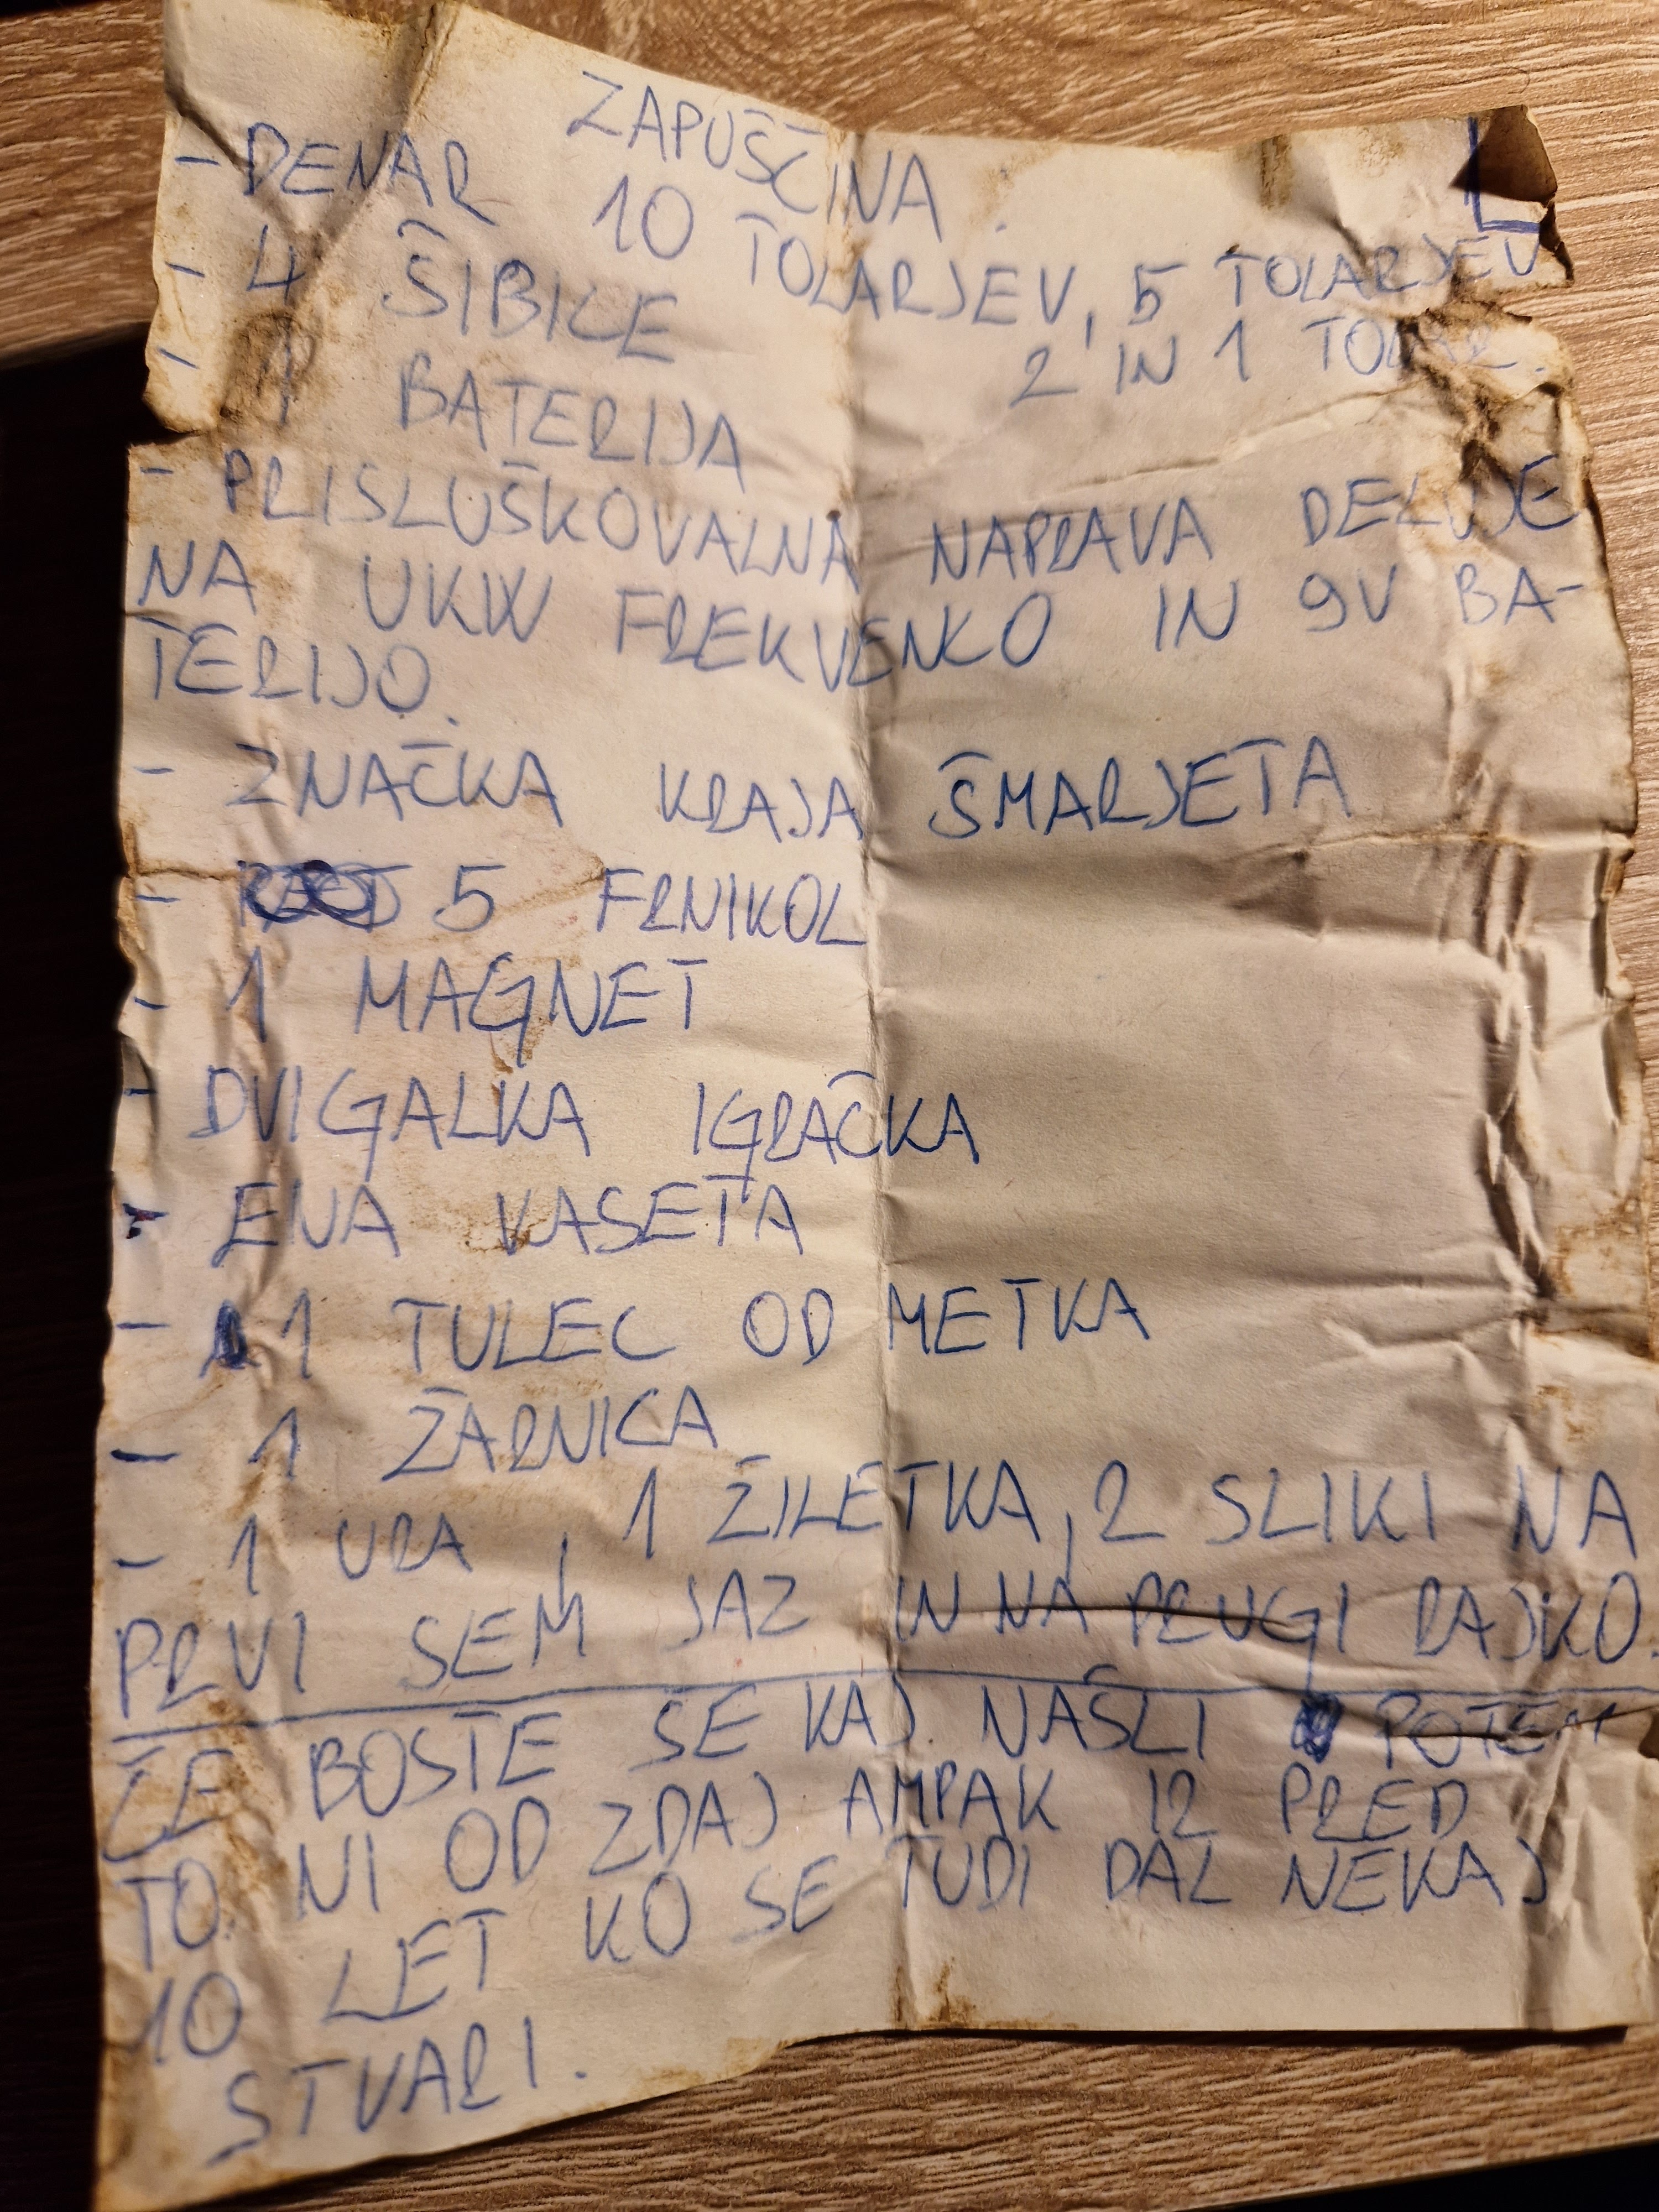 ZAPUŠČINA.
- DENAR 10 TOLARJEV, 5 TOLARJEV
2 IN 1 TOLAR.
- 4 ŠIBICE
- 1 BATERIJA
- PRISLUŠKOVALNA NAPRAVA DELUJE
NA UKW FREKVENCO IN 9V BA-
TERIJO.
- ZNAČKA KRAJA ŠMARJETA
- 5 FRNIKOL
- 1 MAGNET
- DVIGALKA IGRAČKA
- ENA KASETA
- 1 TULEC OD METKA
- 1 ŽARNICA
- 1 URA, 1 ŽILETKA, 2 SLIKI NA
PRVI SEM JAZ IN NA DRUGI RAJKO.
ČE BOSTE ŠE KAJ NAŠLI POTEM
TO NI OD ZDAJ AMPAK IZ PRED
10 LET KO SE TUDI DAL NEKAJ
STVARI.